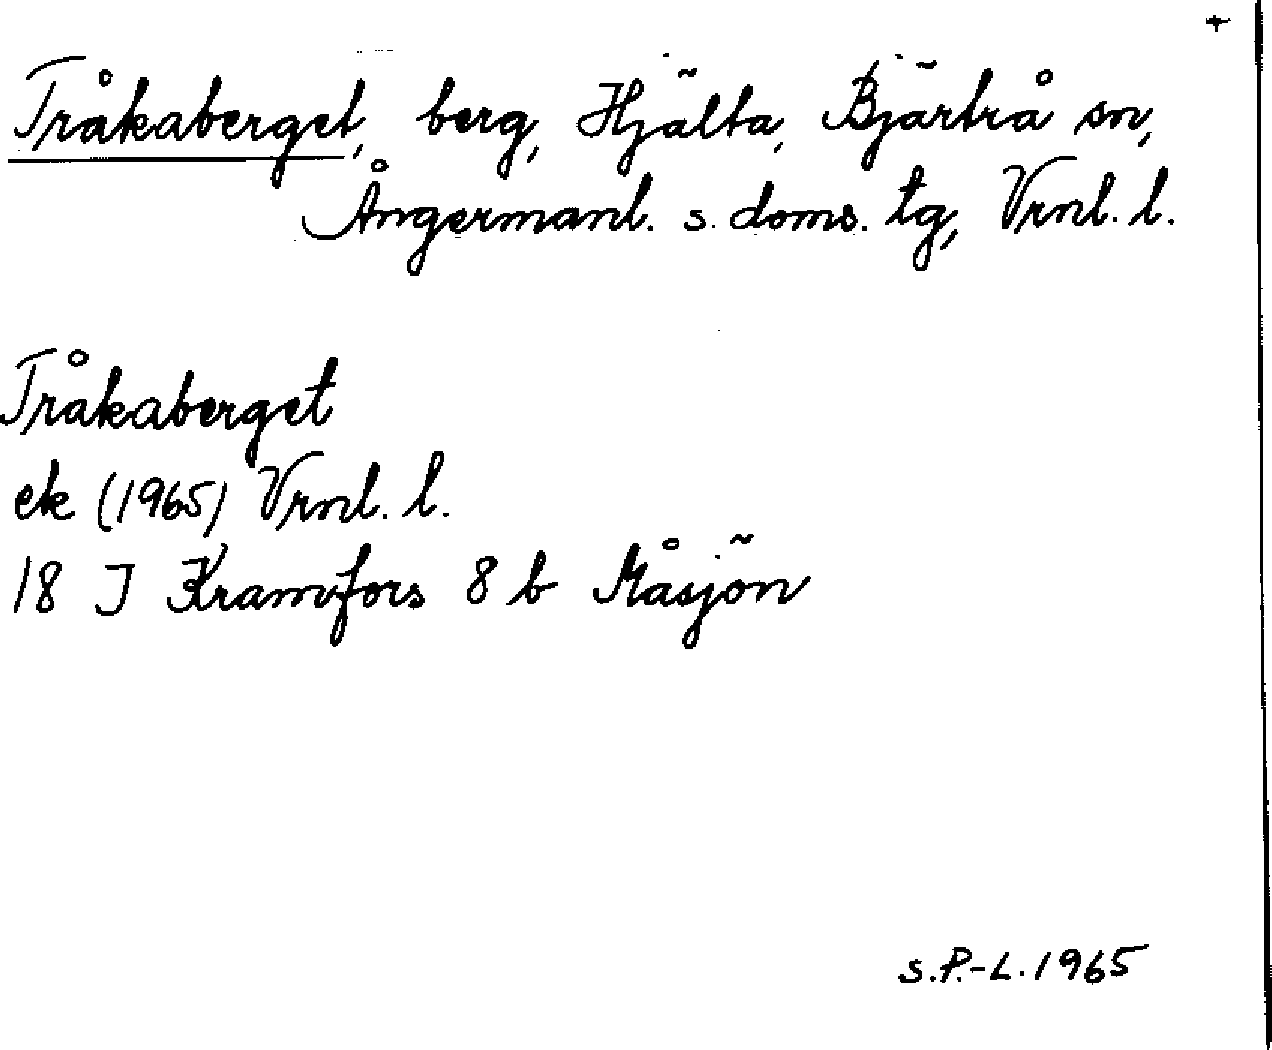 +
Tråkaberget, berg, Hjälta, Bjärtrå sn,
Ångermanl. s. doms. tg, Vrnl. l.
Tråkaberget
ek (1965) Vrnl. l.
18 J Kramfors 8 b Måsjön
S.P.-L. 1965